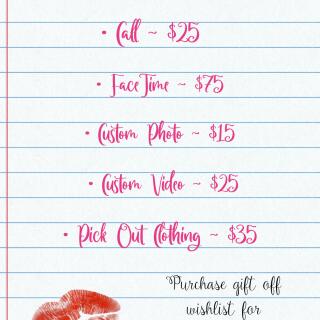 • Call ~ $25
• FaceTime ~ $75
• Custom Photo ~ $15
• Custom Video ~ $25
• Pick Out Clothing ~ $35
Purchase gift off
wishlist for